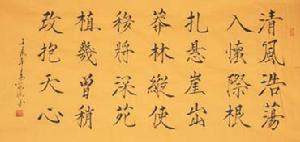 清風浩蕩
入懷際根
扎懸崖出
莽林縱使
移將深苑
植幾曾稍
改抱天心